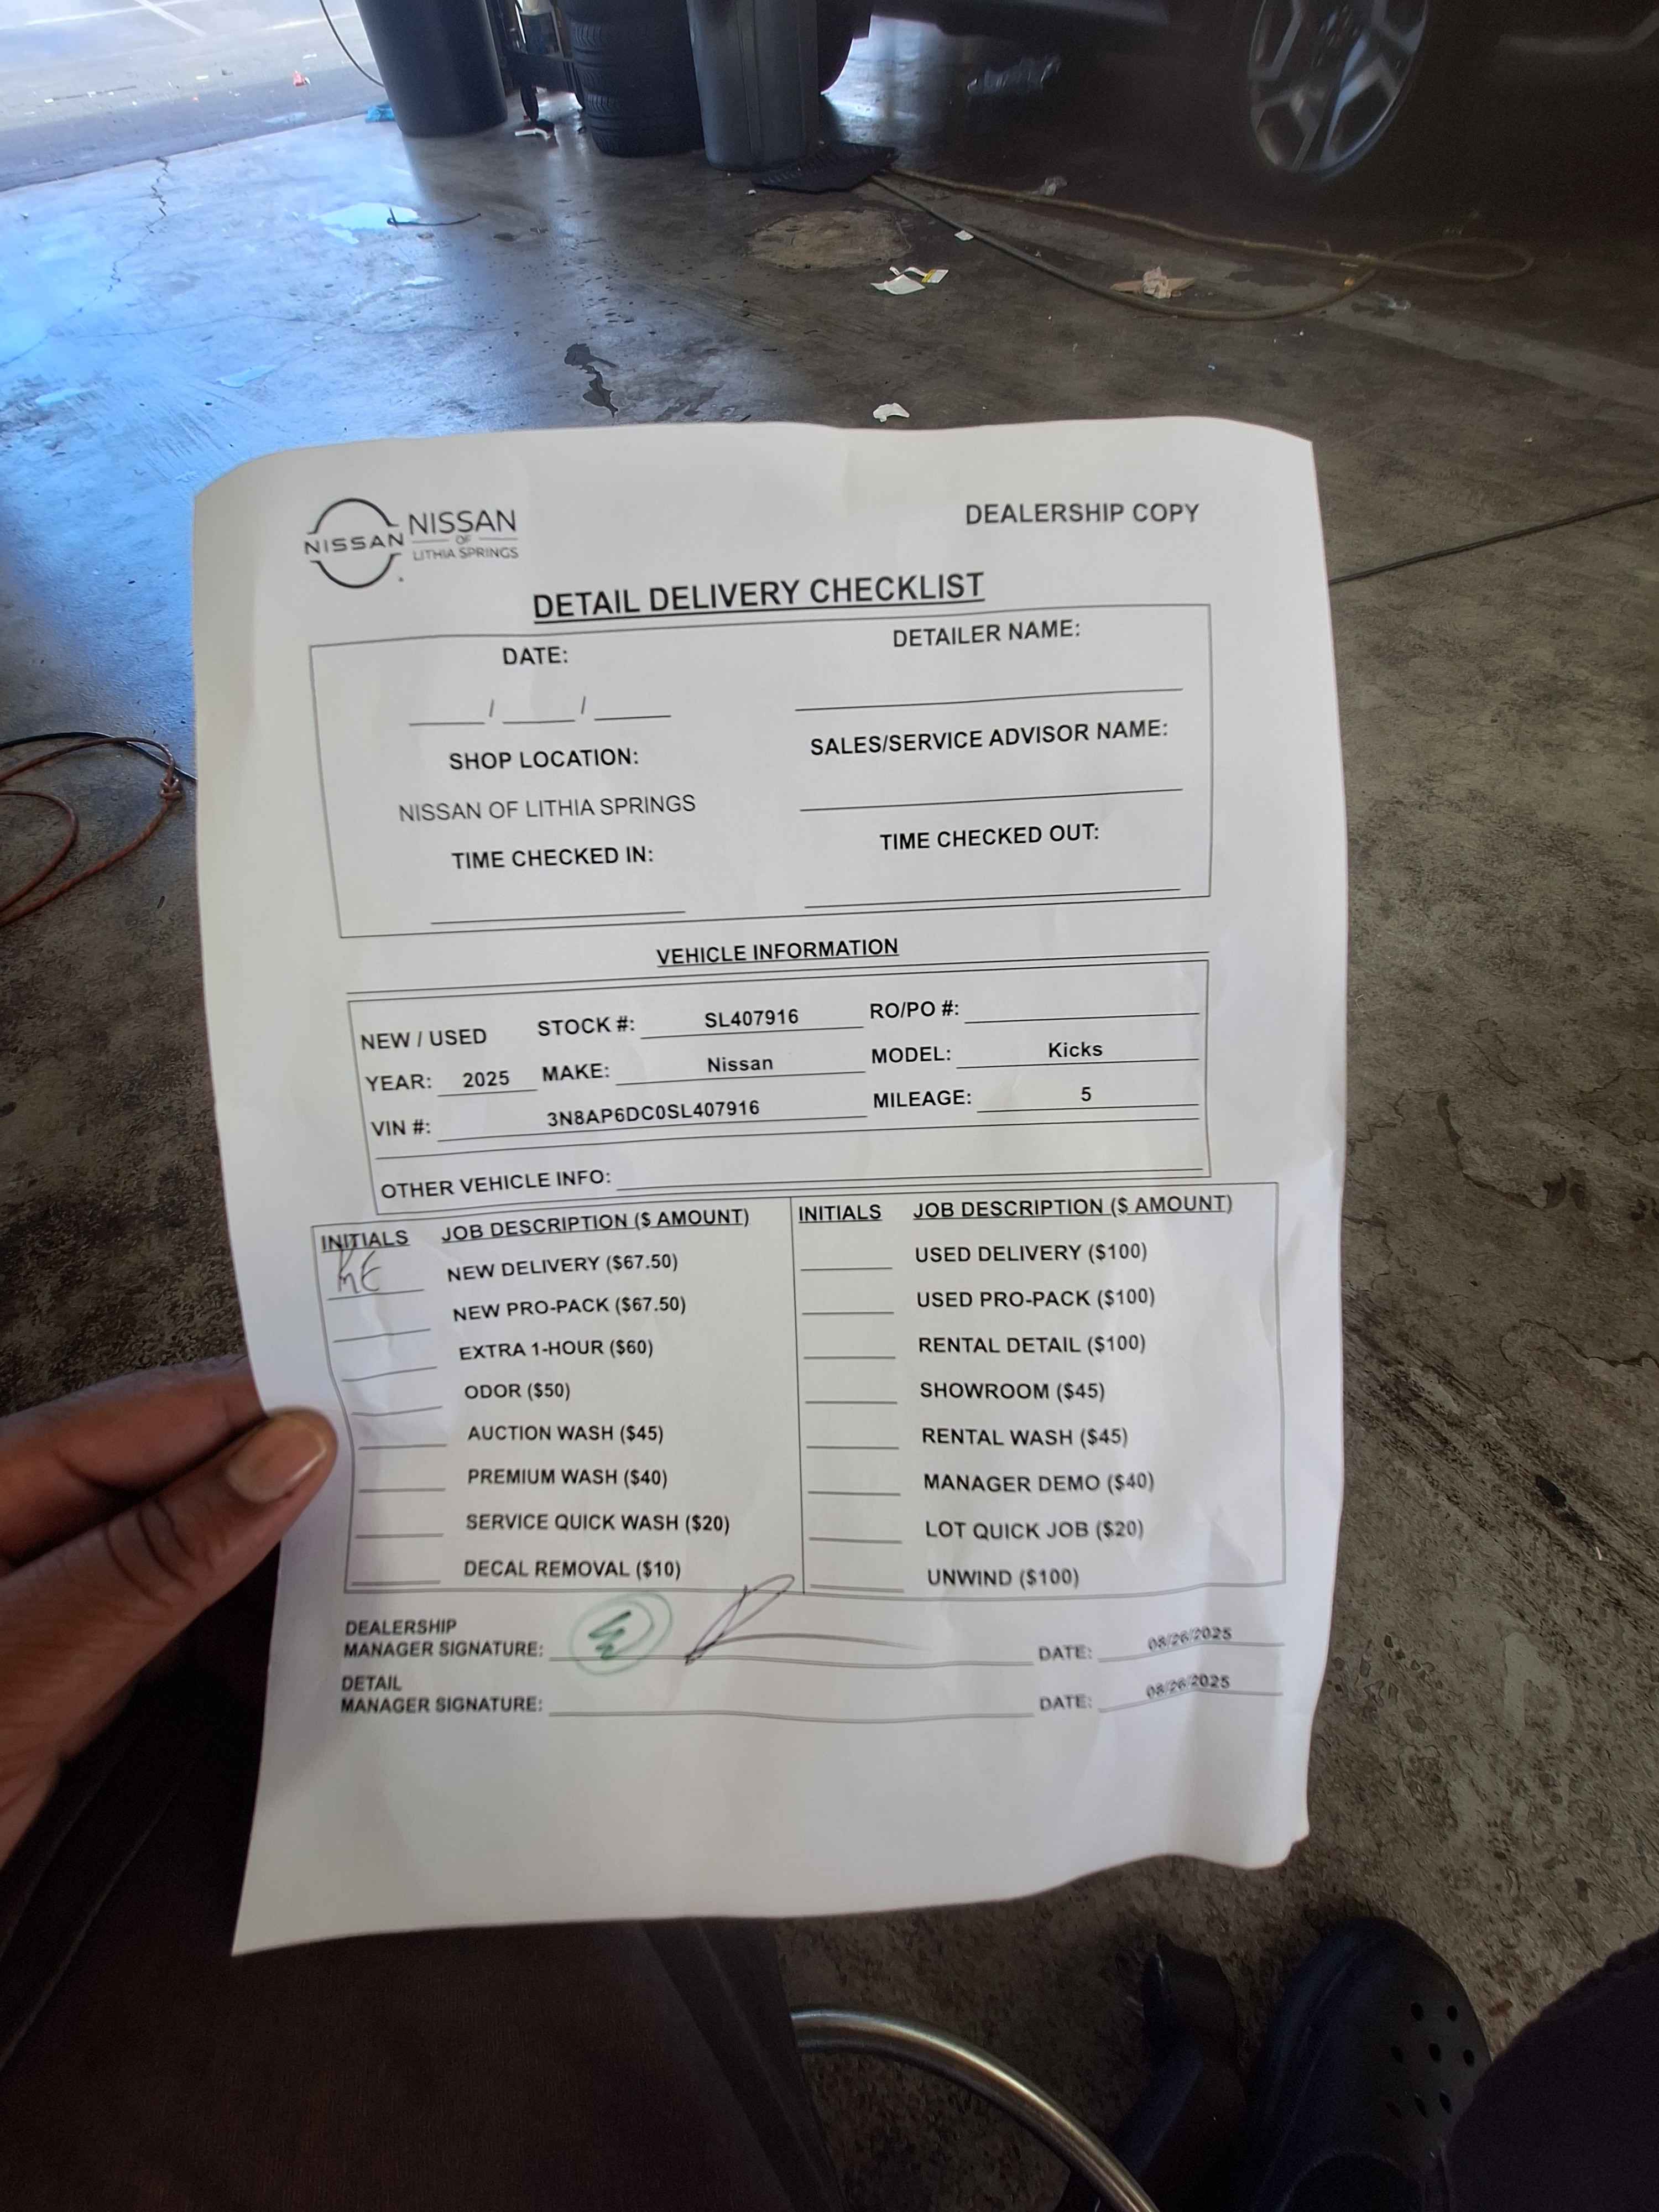 NISSAN
NISSAN
OF
LITHIA SPRINGS
DEALERSHIP COPY
DETAIL DELIVERY CHECKLIST
DATE:
DETAILER NAME:
/ /
SHOP LOCATION:
SALES/SERVICE ADVISOR NAME:
NISSAN OF LITHIA SPRINGS
TIME CHECKED IN:
TIME CHECKED OUT:
VEHICLE INFORMATION
NEW / USED STOCK #: SL407916 RO/PO #:
YEAR: 2025 MAKE: Nissan MODEL: Kicks
VIN #: 3N8AP6DC0SL407916 MILEAGE: 5
OTHER VEHICLE INFO:
INITIALS JOB DESCRIPTION ($ AMOUNT) INITIALS JOB DESCRIPTION ($ AMOUNT)
NEW DELIVERY ($67.50) USED DELIVERY ($100)
NEW PRO-PACK ($67.50) USED PRO-PACK ($100)
EXTRA 1-HOUR ($60) RENTAL DETAIL ($100)
ODOR ($50) SHOWROOM ($45)
AUCTION WASH ($45) RENTAL WASH ($45)
PREMIUM WASH ($40) MANAGER DEMO ($40)
SERVICE QUICK WASH ($20) LOT QUICK JOB ($20)
DECAL REMOVAL ($10) UNWIND ($100)
DEALERSHIP
MANAGER SIGNATURE: DATE: 08/26/2025
DETAIL
MANAGER SIGNATURE: DATE: 08/26/2025